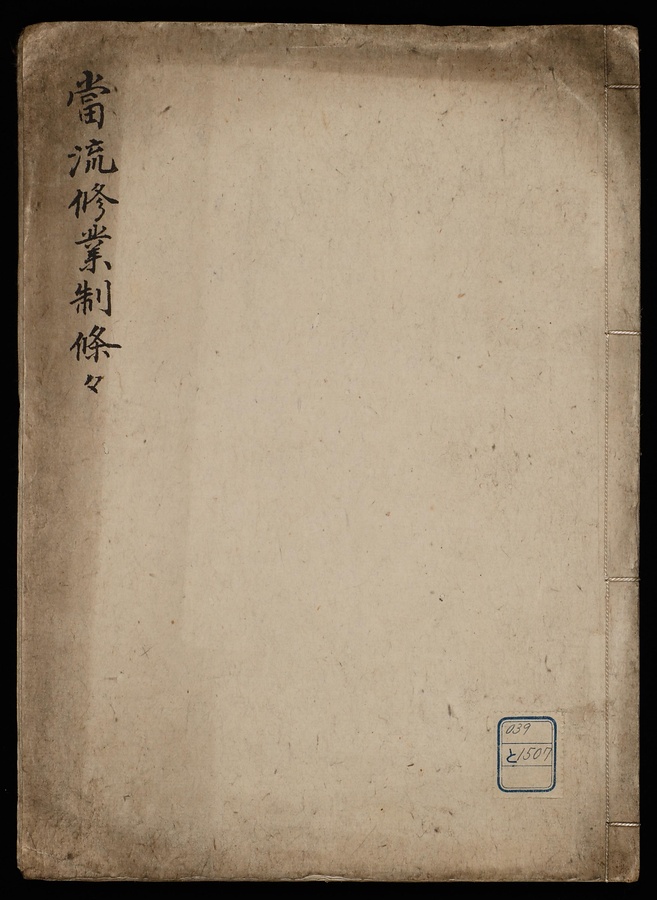 當流修業制條々
039
と1507